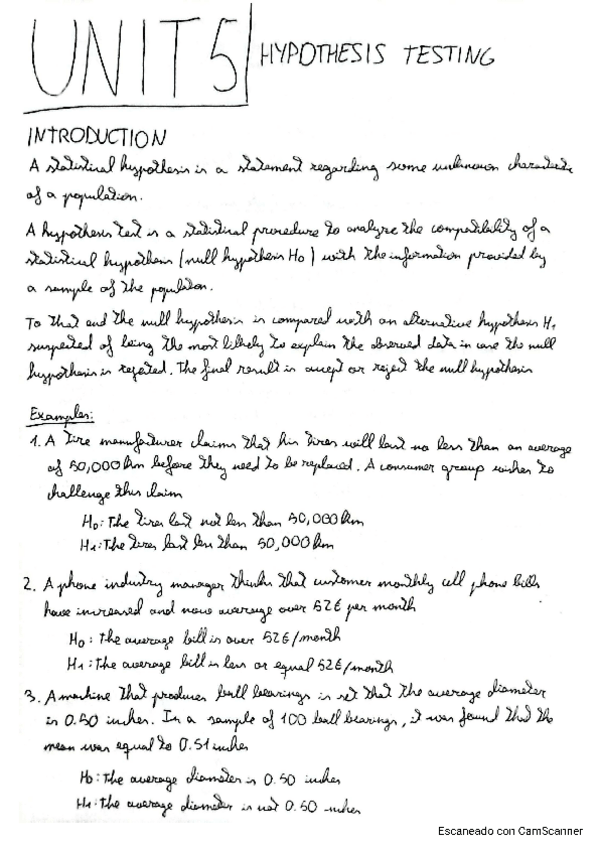 UNIT 5 HYPOTHESIS TESTING
INTRODUCTION
A statistical hypothesis is a statement regarding some unknown characteristic
of a population.
A hypothesis test is a statistical procedure to analyze the compatibility of a
statistical hypothesis (null hypothesis H0) with the information provided by
a sample of the population.
To that end the null hypothesis is compared with an alternative hypothesis H1
suspected of being the most likely to explain the observed data in case the null
hypothesis is rejected. The final result is accept or reject the null hypothesis
Examples:
1. A tire manufacturer claims that his tires will last no less than an average
of 50,000 km before they need to be replaced. A consumer group wishes to
challenge this claim
H0: The tires last not less than 50,000 km
H1: The tires last less than 50,000 km
2. A phone industry manager thinks that customer monthly cell phone bills
have increased and now average over 52€ per month
H0: the average bill is over 52€/month
H1: the average bill is less or equal 52€/month
3. A machine that produces ball bearings is set that the average diameter
is 0.50 inches. In a sample of 100 ball bearings, it was found that the
mean was equal to 0.51 inches
H0: the average diameter is 0.50 inches
H1: the average diameter is not 0.50 inches
Escaneado con CamScanner